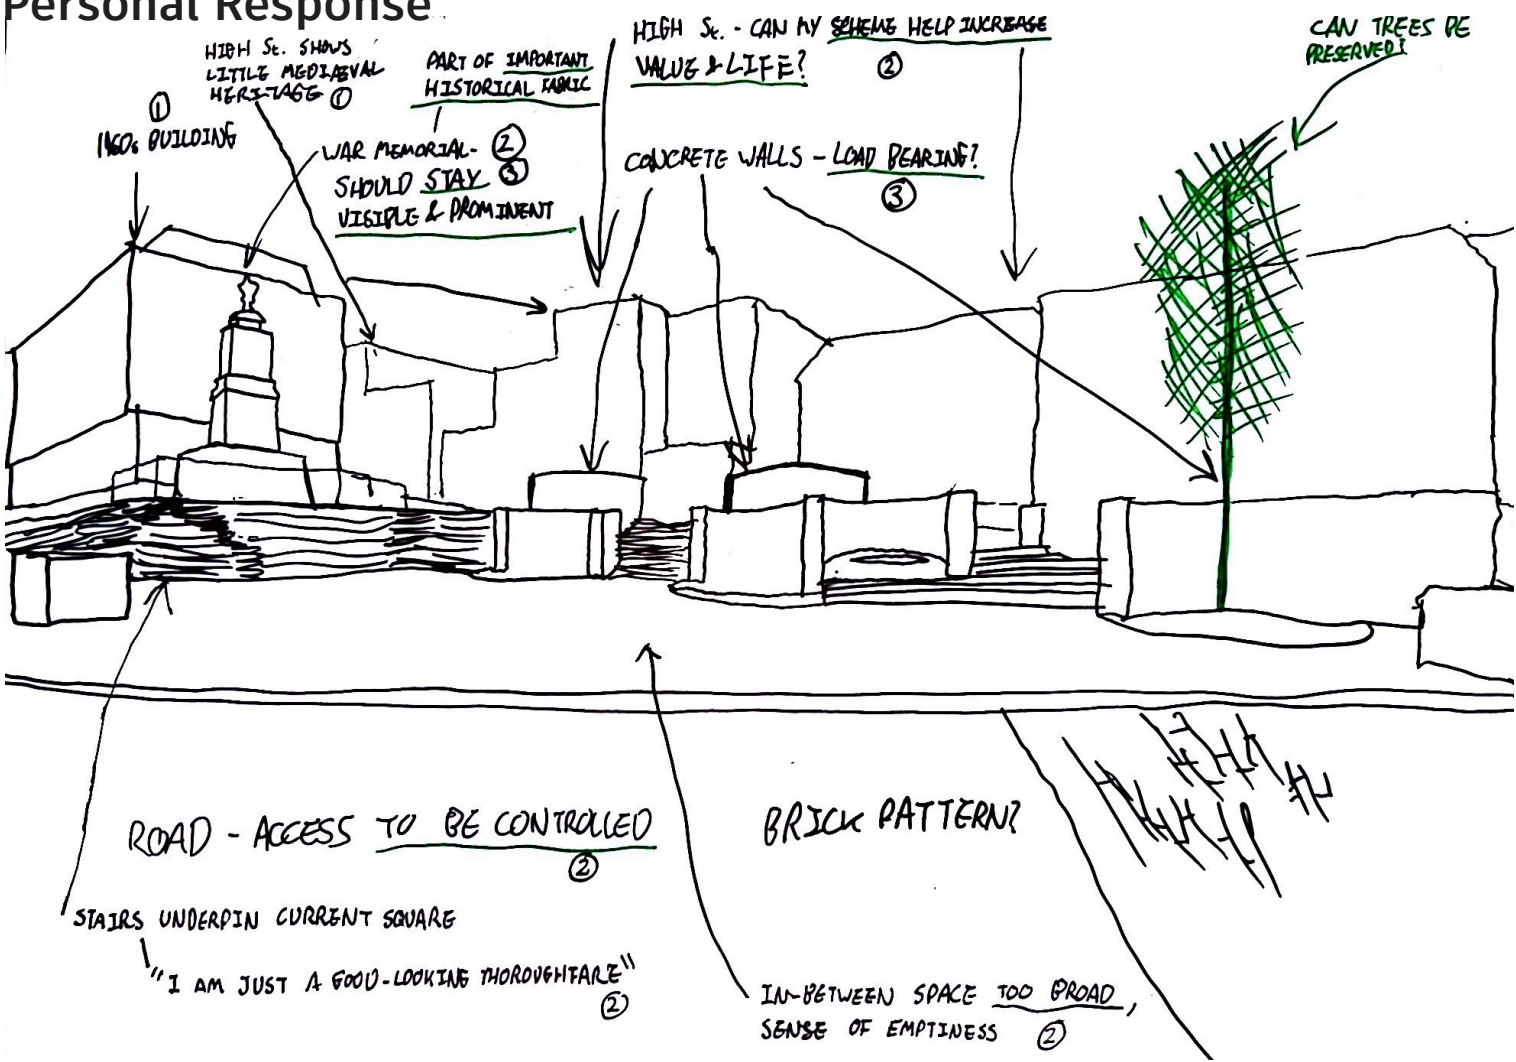 Personal Response
HIGH St. SHOWS
LITTLE MEDIÆVAL
HERITAGE ①
PART OF IMPORTANT
HISTORICAL FABRIC
HIGH St. - CAN MY SCHEME HELP INCREASE
VALUE & LIFE?
②
CAN TREES BE
PRESERVED?
①
1960s BUILDING
WAR MEMORIAL- ②
SHOULD STAY ③
VISIBLE & PROMINENT
CONCRETE WALLS - LOAD BEARING?
③
ROAD - ACCESS TO BE CONTROLLED
②
BRICK PATTERN?
STAIRS UNDERPIN CURRENT SQUARE
"I AM JUST A GOOD-LOOKING THOROUGHFARE"
②
IN-BETWEEN SPACE TOO BROAD,
SENSE OF EMPTINESS ②